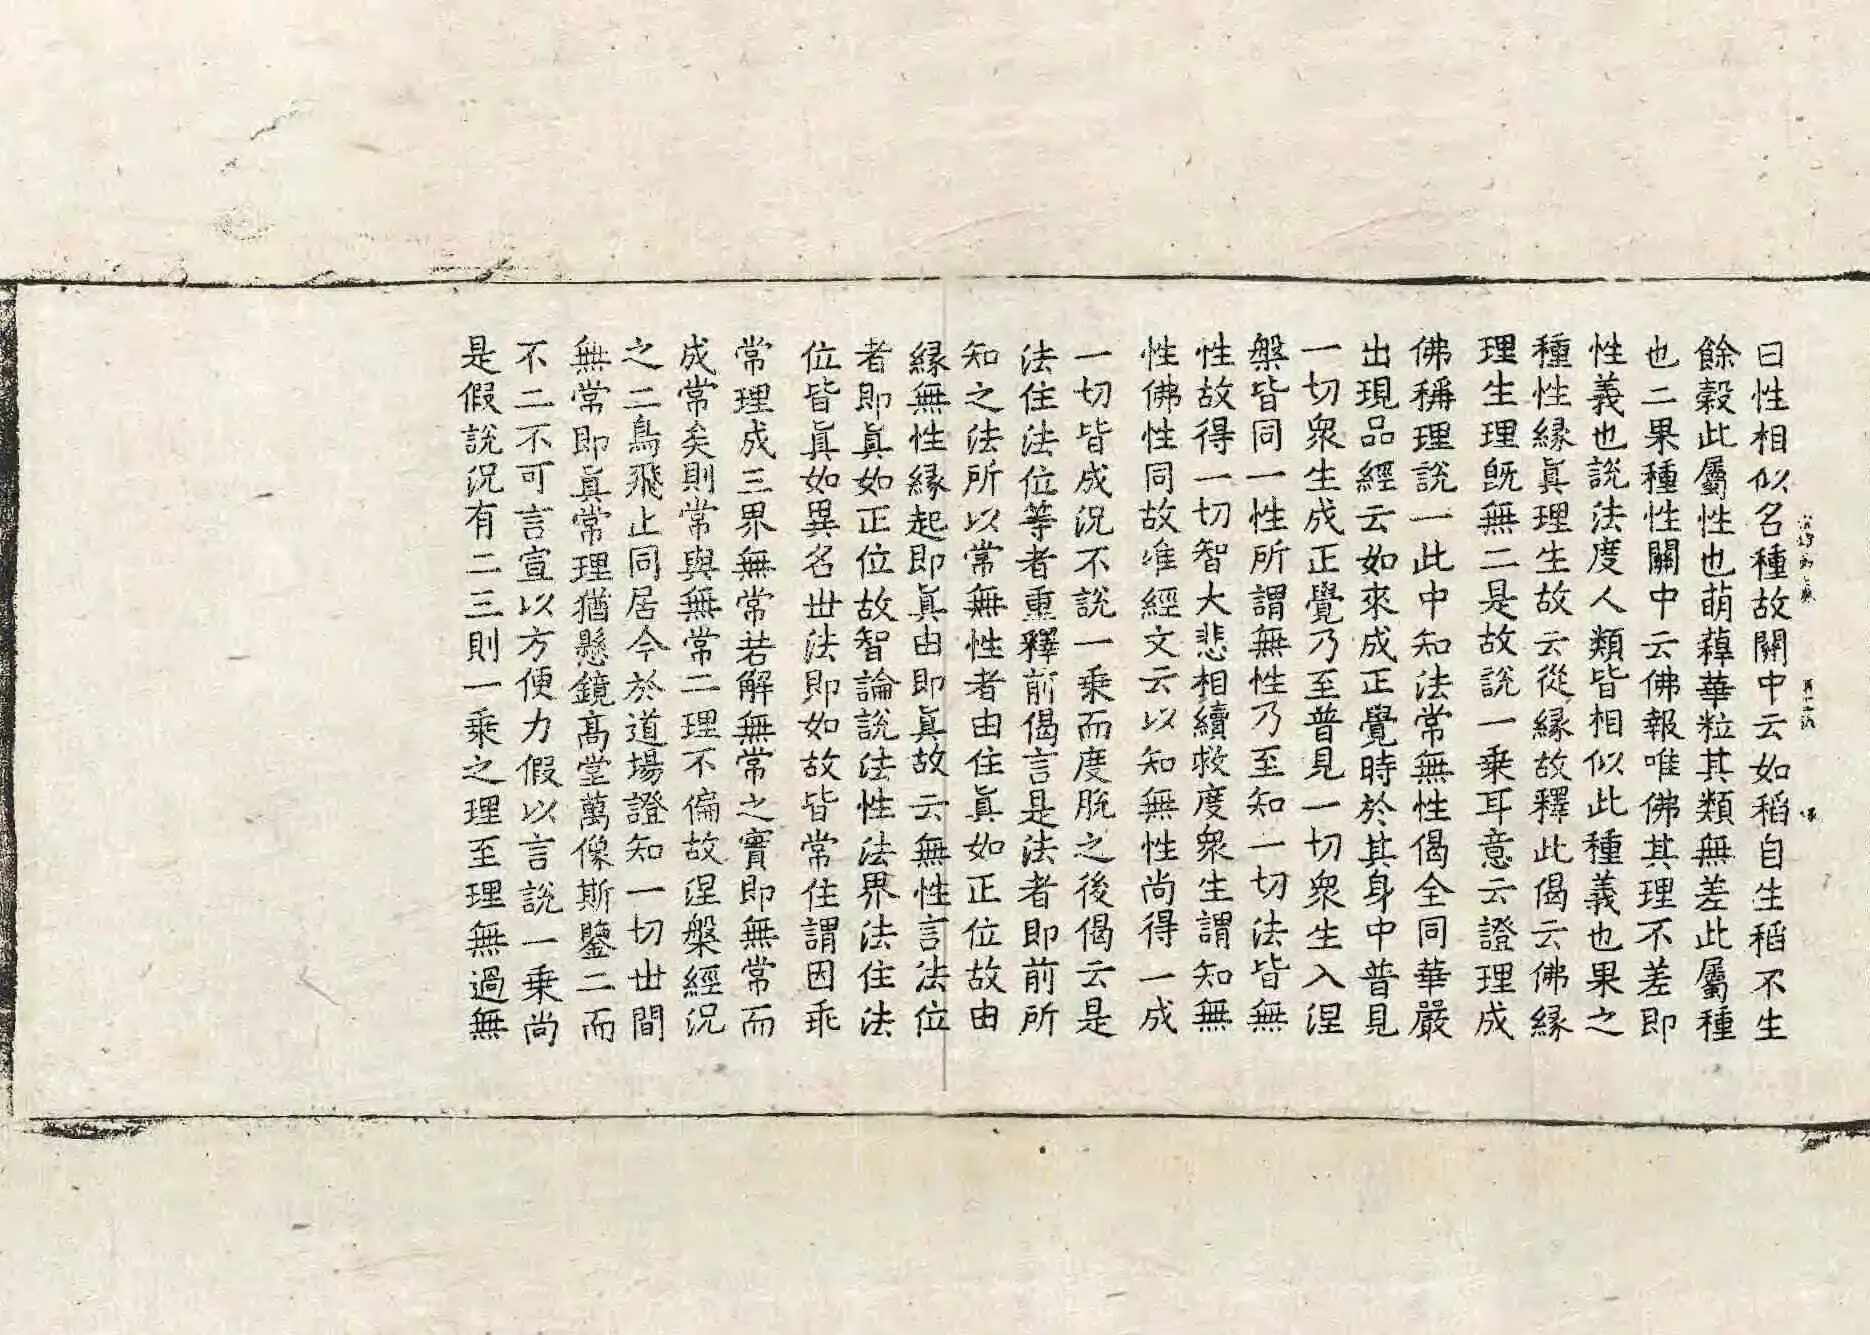 曰性相似名種故關中云如稻自生稻不生
餘穀此屬性也萌䕸華粒其類無差此屬種
也二果種性關中云佛報唯佛其理不差即
性義也說法度人類皆相似此種義也果之
種性縁眞理生故云從縁故釋此偈云佛縁
理生理旣無二是故說一乗耳意云證理成
佛稱理說一此中知法常無性偈全同華嚴
出現品經云如來成正覺時於其身中普見
一切衆生成正覺乃至普見一切衆生入涅
盤皆同一性所謂無性乃至知一切法皆無
性故得一切智大悲相續救度衆生謂知無
性佛性同故准經文云以知無性尚得一成
一切皆成況不說一乗而度脫之後偈云是
法住法位等者重釋前偈言是法者即前所
知之法所以常無性者由住眞如正位故由
縁無性縁起即眞由即眞故云無性言法位
者即眞如正位故智論說法性法界法住法
位皆眞如異名世法即如故皆常住謂因乖
常理成三界無常若解無常之實即無常而
成常矣則常與無常二理不偏故涅槃經況
之二鳥飛止同居今於道場證知一切世間
無常即眞常理猶懸鏡高堂萬像斯鑒二而
不二不可言宣以方便力假以言說一乗尚
是假說況有二三則一乗之理至理無過無